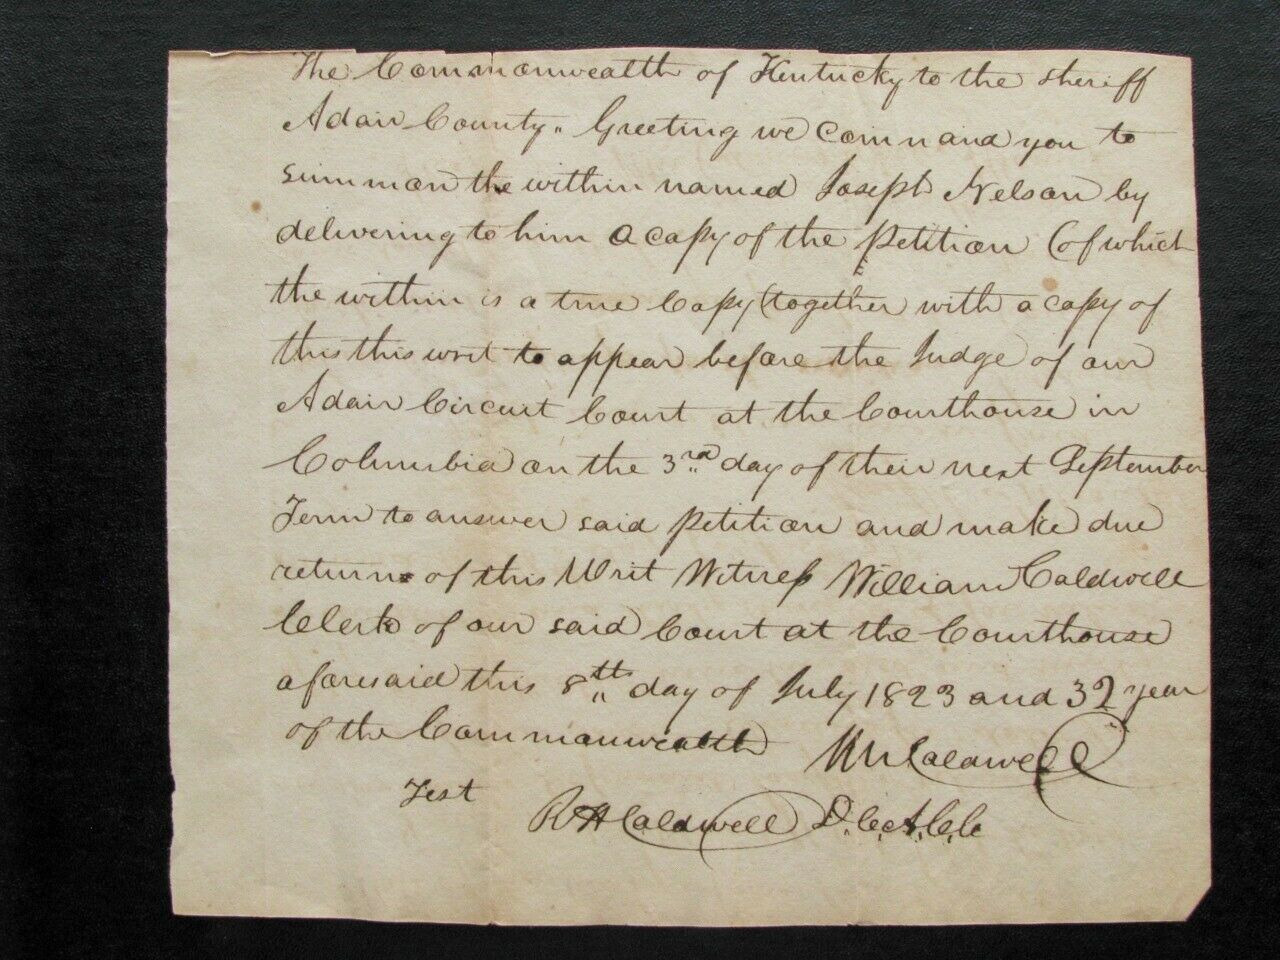 The Commonwealth of Kentucky to the sheriff
Adair County " Greeting we command you to
summon the within named Joseph Nelson by
delivering to him a copy of the petition (of which
the within is a true Copy (together with a copy of
this this writ to appear before the Judge of our
Adair Circuit Court at the Courthouse in
Columbia on the 3rd day of their next September
Term to answer said petition and make due
return of this Writ Witness William Caldwell
Clerk of our said Court at the Courthouse
aforesaid this 8th day of July 1823 and 32 year
of the Commonwealth Wm Caldwell
Test
R H Caldwell D.C.A.C.C.